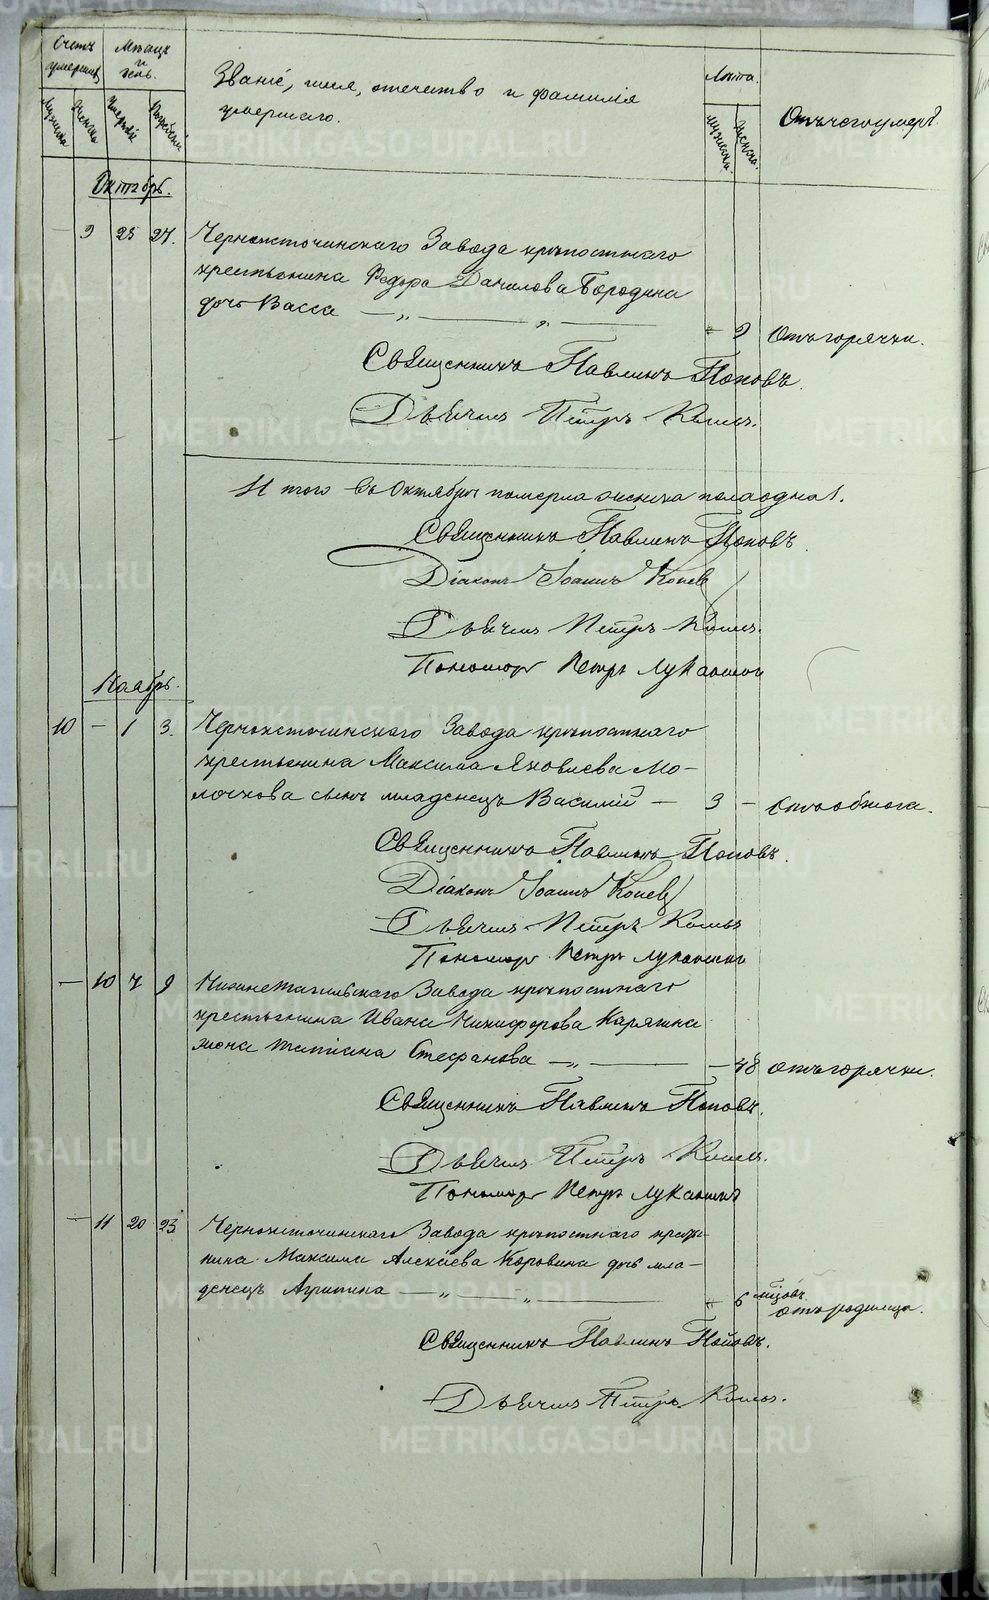 Счетъ умершихъ
Мѣсяцъ и день.
Званіе, имя, отечество и фамилія
умершаго.
Лѣта.
Отъ чего умеръ.
Мужеска
Женска
Умертвія
Погребенія
Мужеска.
Женска.
Октябрь.
— 9 25 27. Черноисточинскаго Завода крѣпостнаго
крестьянина Ѳедора Данилова Бородина
дочь Васса — „ — „ — 9 Отъ горячки.
Священникъ Павлинъ Поповъ.
Дьячекъ Петръ
Итого въ Октябрѣ померла женска пола одна 1.
Священникъ Павлинъ Поповъ
Діаконъ Іоаннъ Коневъ
Дьячекъ Петръ
Пономарь Петръ Луканинъ
Ноябрь.
10 — 1 3. Черноисточинскаго Завода крѣпостнаго
крестьянина Максима Яковлева Мо-
лочкова сынъ младенецъ Василій — 3 — Отъ обжога.
Священникъ Павлинъ Поповъ.
Діаконъ Іоаннъ Коневъ
Дьячекъ Петръ
Пономарь Петръ Луканинъ
— 10 7 9 Нижнетагильскаго Завода крѣпостнаго
крестьянина Ивана Никифорова Карякина
жена Татіана Стефанова — „ — 48 Отъ горячки.
Священникъ Павлинъ Поповъ.
Дьячекъ Петръ
Пономарь Петръ Луканинъ
— 11 20 23 Черноисточинскаго Завода крѣпостнаго кресть-
нина Максима Алексѣева Коровина дочь мла-
денецъ Агрипина — „ — „ — 6 мѣсяцовъ. Отъ родимца.
Священникъ Павлинъ Поповъ.
Дьячекъ Петръ
METRIKI.GASO-URAL.RU